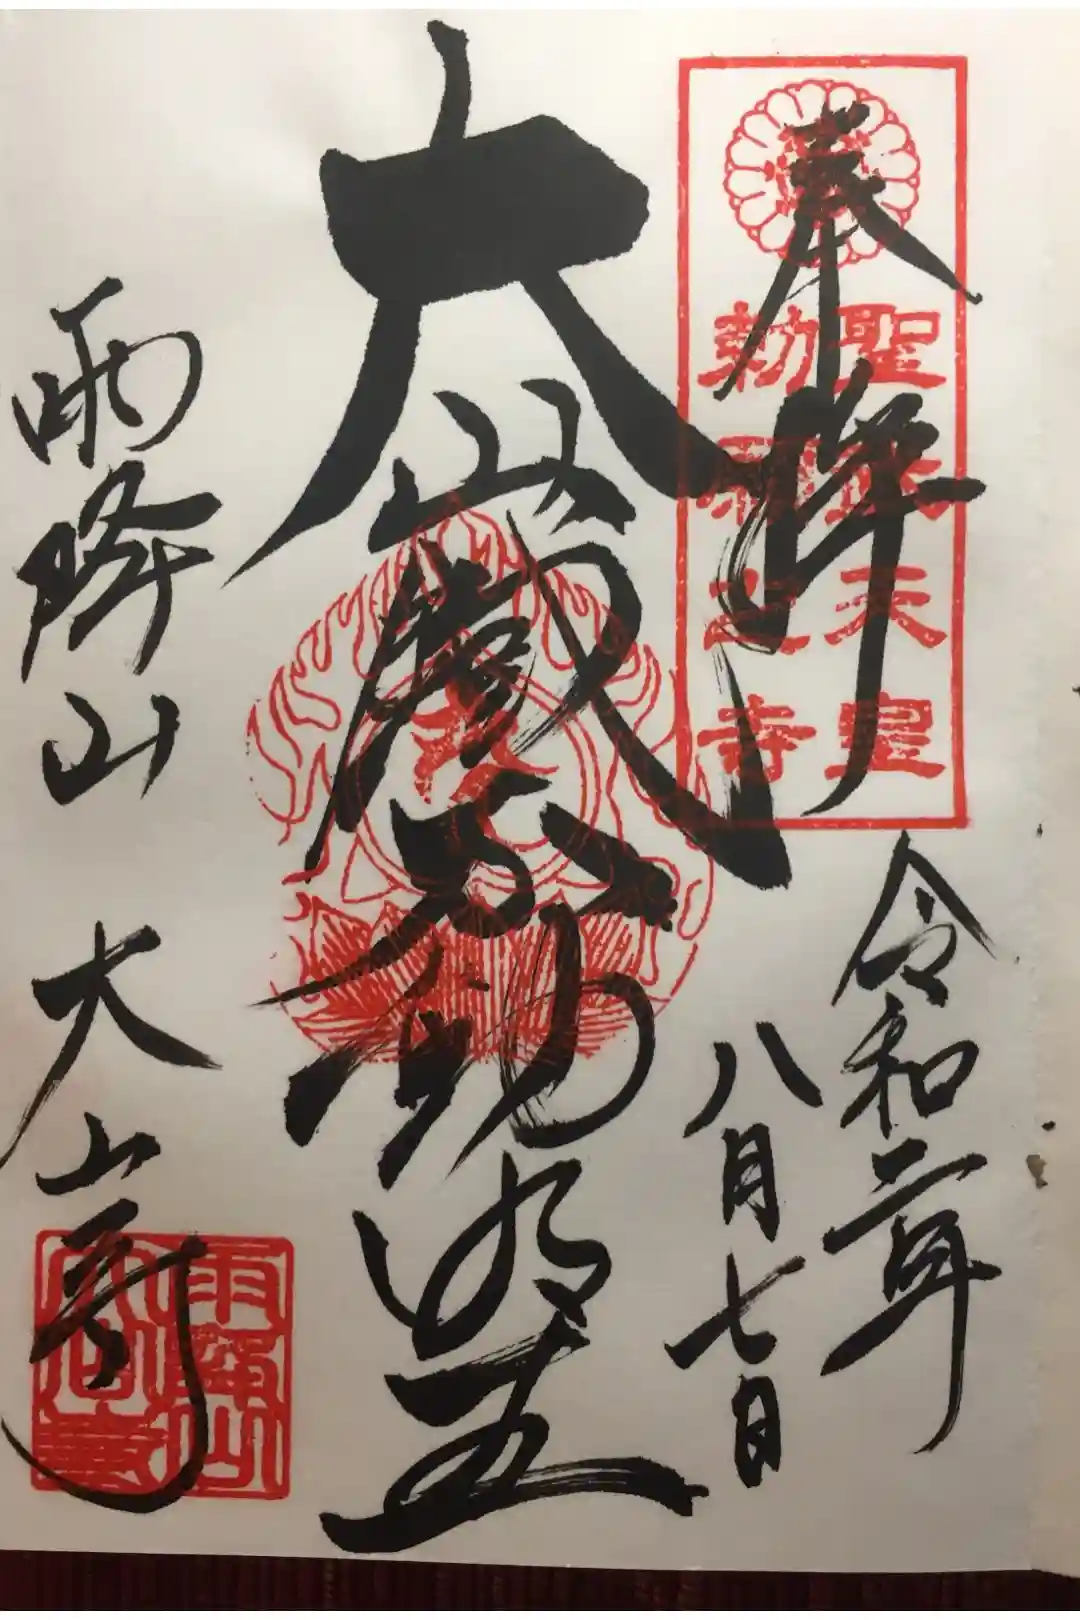 奉拝
聖武天皇
勅願之寺
令和二年
八月七日
大山不動明王
雨降山 大山寺
雨降山